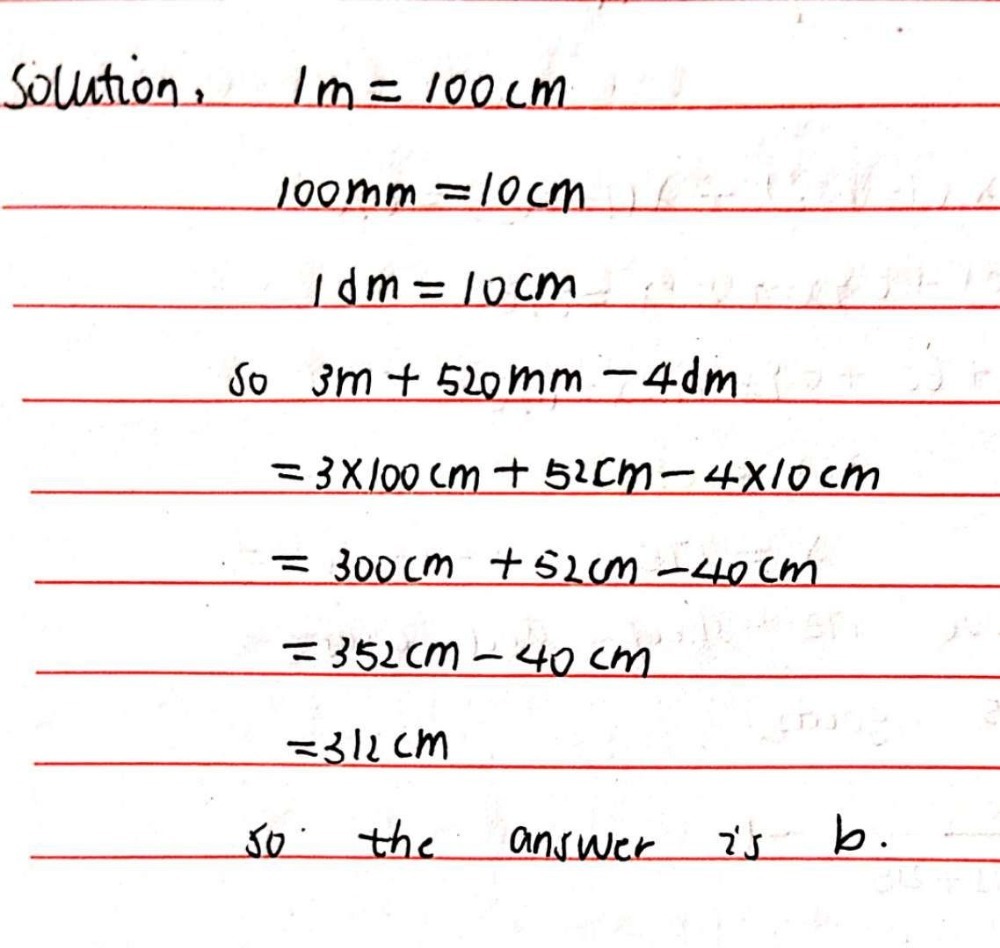 Solution, 1m = 100cm
100mm = 10cm
1dm = 10cm
so 3m + 520mm - 4dm
= 3X100cm + 52cm - 4X10cm
= 300cm + 52cm - 40cm
= 352cm - 40cm
= 312cm
so the answer is b.